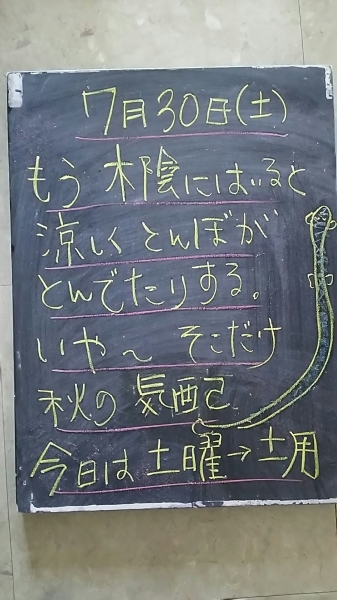 7月30日(土)
もう 木陰にはいると
涼しく とんぼが
とんでたりする。
いや〜 そこだけ
秋の 気配
今日は 土曜→土用